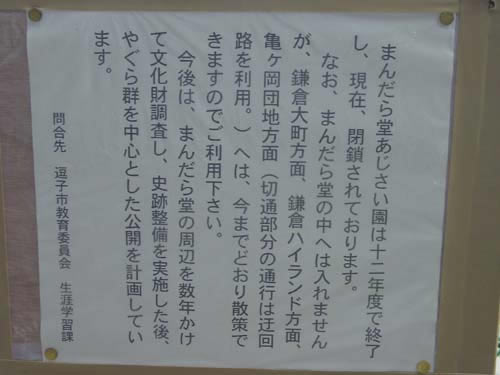 まんだら堂あじさい園は十二年度で終了
し、現在、閉鎖されております。
なお、まんだら堂の中へは入れません
が、鎌倉大町方面、鎌倉ハイランド方面、
亀ヶ岡団地方面（切通部分の通行は迂回
路を利用。）へは、今までどおり散策で
きますのでご利用下さい。
今後は、まんだら堂の周辺を数年かけ
て文化財調査し、史跡整備を実施した後、
やぐら群を中心とした公開を計画してい
ます。
問合先　逗子市教育委員会　生涯学習課